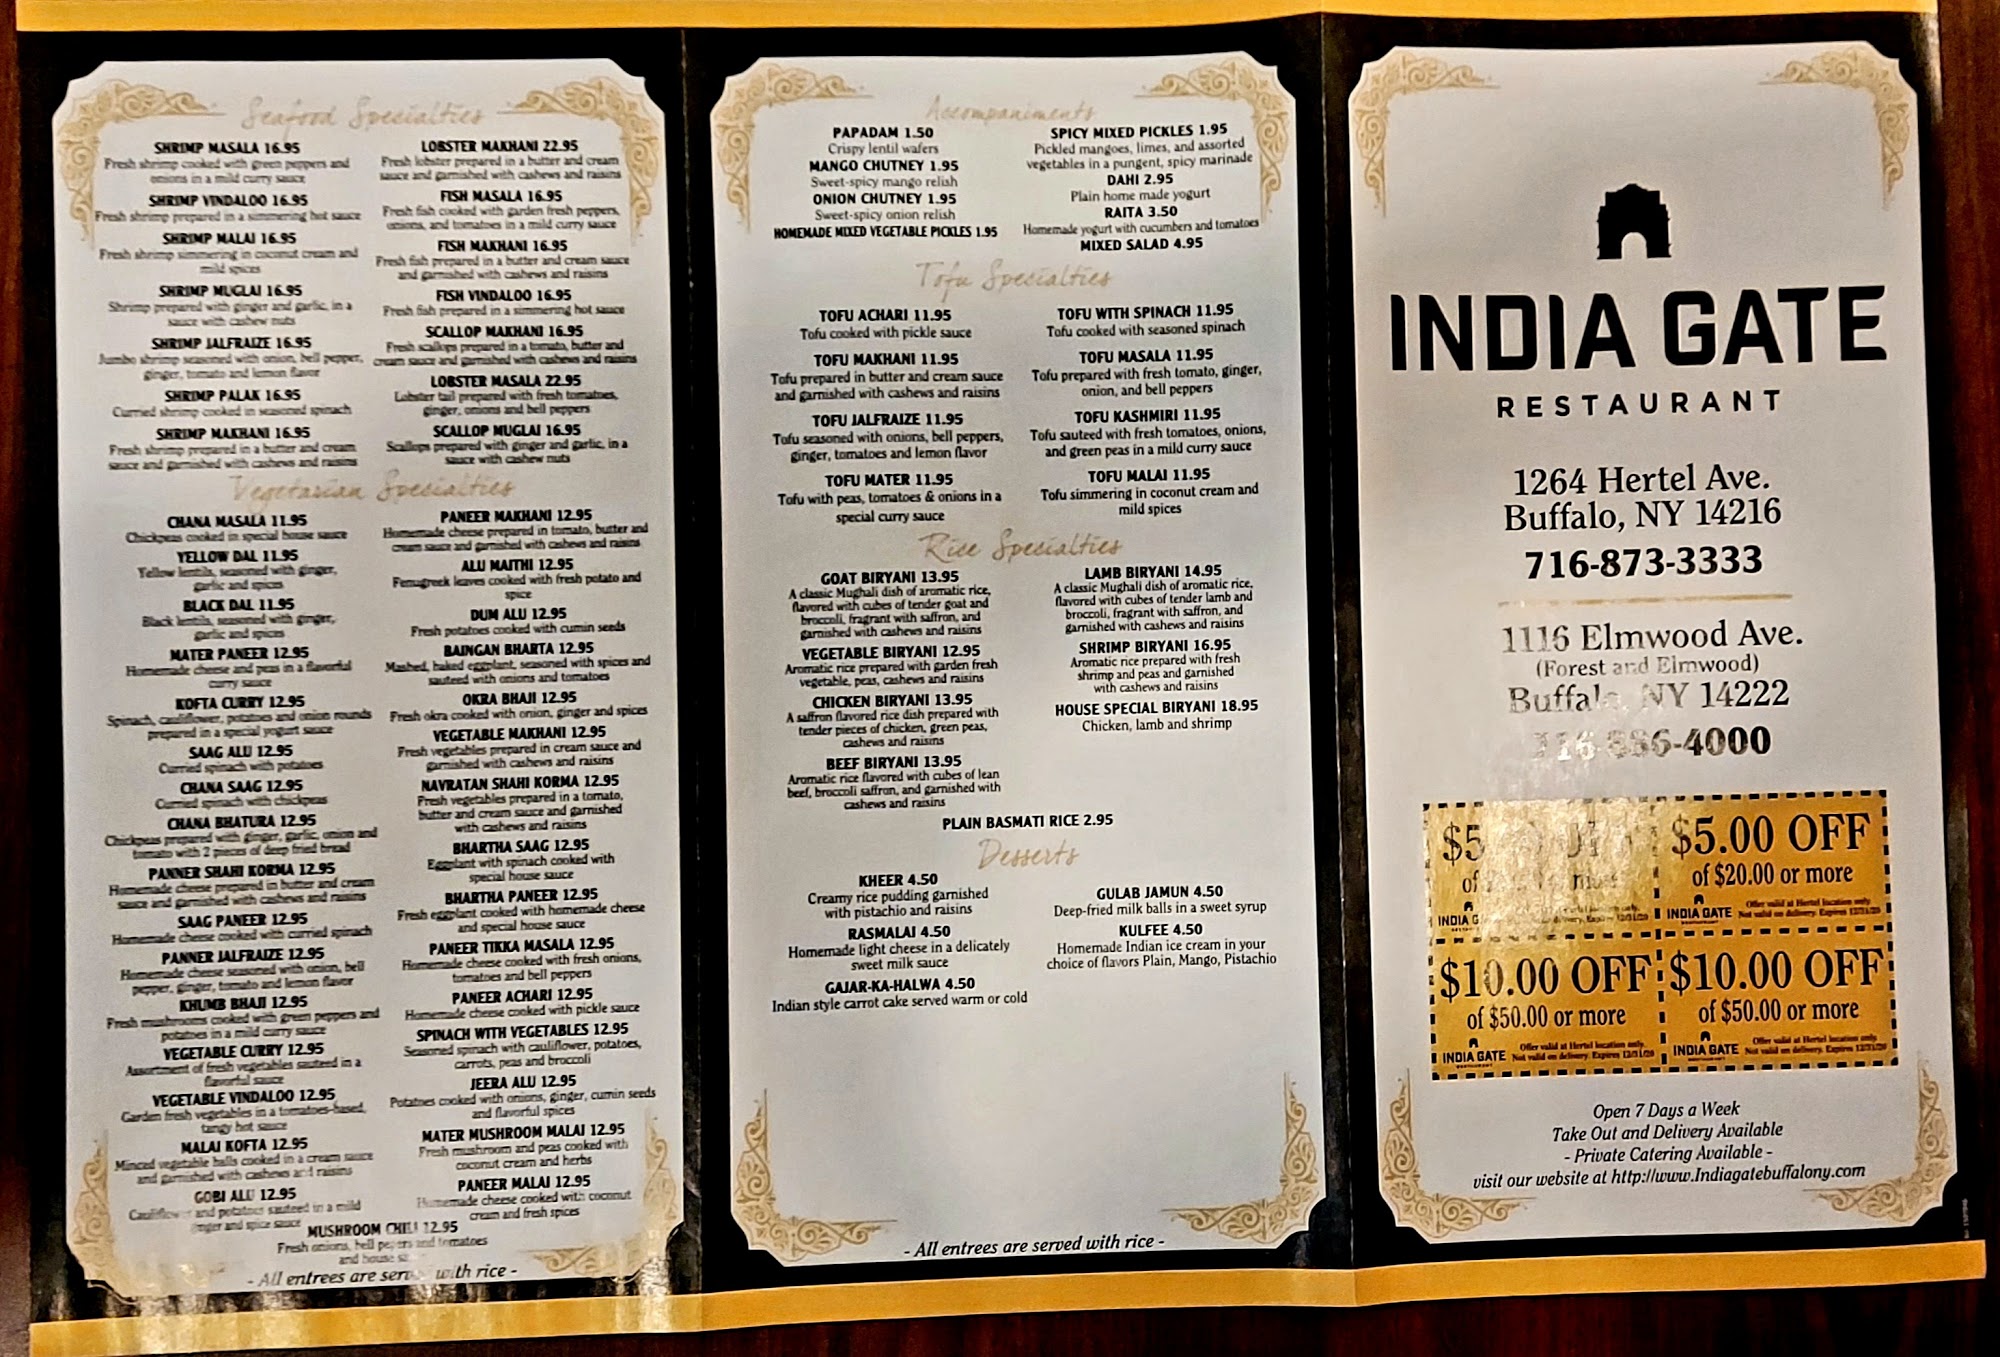 Seafood Specialties
SHRIMP MASALA 16.95
Fresh shrimp cooked with green peppers and
onions in a mild curry sauce
SHRIMP VINDALOO 16.95
Fresh shrimp prepared in a simmering hot sauce
SHRIMP MALAI 16.95
Fresh shrimp simmering in coconut cream and
mild spices
SHRIMP MUGLAI 16.95
Shrimp prepared with ginger and garlic, in a
sauce with cashew nuts
SHRIMP JALFRAIZE 16.95
Jumbo shrimp seasoned with onion, bell pepper,
ginger, tomato and lemon flavor
SHRIMP PALAK 16.95
Curried shrimp cooked in seasoned spinach
SHRIMP MAKHANI 16.95
Fresh shrimp prepared in a butter and cream
sauce and garnished with cashews and raisins
LOBSTER MAKHANI 22.95
Fresh lobster prepared in a butter and cream
sauce and garnished with cashews and raisins
FISH MASALA 16.95
Fresh fish cooked with garden fresh peppers,
onions, and tomatoes in a mild curry sauce
FISH MAKHANI 16.95
Fresh fish prepared in a butter and cream sauce
and garnished with cashews and raisins
FISH VINDALOO 16.95
Fresh fish prepared in a simmering hot sauce
SCALLOP MAKHANI 16.95
Fresh scallops prepared in a tomato, butter and
cream sauce and garnished with cashews and raisins
LOBSTER MASALA 22.95
Lobster tail prepared with fresh tomatoes,
ginger, onions and bell peppers
SCALLOP MUGLAI 16.95
Scallops prepared with ginger and garlic, in a
sauce with cashew nuts
Vegetarian Specialties
CHANA MASALA 11.95
Chickpeas cooked in special house sauce
YELLOW DAL 11.95
Yellow lentils, seasoned with ginger,
garlic and spices
BLACK DAL 11.95
Black lentils, seasoned with ginger,
garlic and spices
MATER PANEER 12.95
Homemade cheese and peas in a flavorful
curry sauce
KOFTA CURRY 12.95
Spinach, cauliflower, potatoes and onion rounds
prepared in a special yogurt sauce
SAAG ALU 12.95
Curried spinach with potatoes
CHANA SAAG 12.95
Curried spinach with chickpeas
CHANA BHATURA 12.95
Chickpeas prepared with ginger, garlic, onion and
tomato with 2 pieces of deep fried bread
PANNER SHAHI KORMA 12.95
Homemade cheese prepared in butter and cream
sauce and garnished with cashews and raisins
SAAG PANEER 12.95
Homemade cheese cooked with curried spinach
PANNER JALFRAIZE 12.95
Homemade cheese seasoned with onion, bell
pepper, ginger, tomato and lemon flavor
KHUMB BHAJI 12.95
Fresh mushrooms cooked with green peppers and
potatoes in a mild curry sauce
VEGETABLE CURRY 12.95
Assortment of fresh vegetables sauteed in a
flavorful sauce
VEGETABLE VINDALOO 12.95
Garden fresh vegetables in a tomatoes-based,
tangy hot sauce
MALAI KOFTA 12.95
Minced vegetable balls cooked in a cream sauce
and garnished with cashews and raisins
GOBI ALU 12.95
Cauliflower and potatoes sauteed in a mild
ginger and spice sauce
PANEER MAKHANI 12.95
Homemade cheese prepared in tomato, butter and
cream sauce and garnished with cashews and raisins
ALU MAITHI 12.95
Fenugreek leaves cooked with fresh potato and
spice
DUM ALU 12.95
Fresh potatoes cooked with cumin seeds
BAINGAN BHARTA 12.95
Mashed, baked eggplant, seasoned with spices and
sauteed with onions and tomatoes
OKRA BHAJI 12.95
Fresh okra cooked with onion, ginger and spices
VEGETABLE MAKHANI 12.95
Fresh vegetables prepared in cream sauce and
garnished with cashews and raisins
NAVRATAN SHAHI KORMA 12.95
Fresh vegetables prepared in a tomato,
butter and cream sauce and garnished
with cashews and raisins
BHARTHA SAAG 12.95
Eggplant with spinach cooked with
special house sauce
BHARTHA PANEER 12.95
Fresh eggplant cooked with homemade cheese
and special house sauce
PANEER TIKKA MASALA 12.95
Homemade cheese cooked with fresh onions,
tomatoes and bell peppers
PANEER ACHARI 12.95
Homemade cheese cooked with pickle sauce
SPINACH WITH VEGETABLES 12.95
Seasoned spinach with cauliflower, potatoes,
carrots, peas and broccoli
JEERA ALU 12.95
Potatoes cooked with onions, ginger, cumin seeds
and flavorful spices
MATER MUSHROOM MALAI 12.95
Fresh mushroom and peas cooked with
coconut cream and herbs
PANEER MALAI 12.95
Homemade cheese cooked with coconut
cream and fresh spices
MUSHROOM CHILI 12.95
Fresh onions, bell pepers and tomatoes
and house
- All entrees are served with rice -
Accompaniments
PAPADAM 1.50
Crispy lentil wafers
MANGO CHUTNEY 1.95
Sweet-spicy mango relish
ONION CHUTNEY 1.95
Sweet-spicy onion relish
HOMEMADE MIXED VEGETABLE PICKLES 1.95
SPICY MIXED PICKLES 1.95
Pickled mangoes, limes, and assorted
vegetables in a pungent, spicy marinade
DAHI 2.95
Plain home made yogurt
RAITA 3.50
Homemade yogurt with cucumbers and tomatoes
MIXED SALAD 4.95
Tofu Specialties
TOFU ACHARI 11.95
Tofu cooked with pickle sauce
TOFU MAKHANI 11.95
Tofu prepared in butter and cream sauce
and garnished with cashews and raisins
TOFU JALFRAIZE 11.95
Tofu seasoned with onions, bell peppers,
ginger, tomatoes and lemon flavor
TOFU MATER 11.95
Tofu with peas, tomatoes & onions in a
special curry sauce
TOFU WITH SPINACH 11.95
Tofu cooked with seasoned spinach
TOFU MASALA 11.95
Tofu prepared with fresh tomato, ginger,
onion, and bell peppers
TOFU KASHMIRI 11.95
Tofu sauteed with fresh tomatoes, onions,
and green peas in a mild curry sauce
TOFU MALAI 11.95
Tofu simmering in coconut cream and
mild spices
Rice Specialties
GOAT BIRYANI 13.95
A classic Mughali dish of aromatic rice,
flavored with cubes of tender goat and
broccoli, fragrant with saffron, and
garnished with cashews and raisins
VEGETABLE BIRYANI 12.95
Aromatic rice prepared with garden fresh
vegetable, peas, cashews and raisins
CHICKEN BIRYANI 13.95
A saffron flavored rice dish prepared with
tender pieces of chicken, green peas,
cashews and raisins
BEEF BIRYANI 13.95
Aromatic rice flavored with cubes of lean
beef, broccoli saffron, and garnished with
cashews and raisins
LAMB BIRYANI 14.95
A classic Mughali dish of aromatic rice,
flavored with cubes of tender lamb and
broccoli, fragrant with saffron, and
garnished with cashews and raisins
SHRIMP BIRYANI 16.95
Aromatic rice prepared with fresh
shrimp and peas and garnished
with cashews and raisins
HOUSE SPECIAL BIRYANI 18.95
Chicken, lamb and shrimp
PLAIN BASMATI RICE 2.95
Desserts
KHEER 4.50
Creamy rice pudding garnished
with pistachio and raisins
RASMALAI 4.50
Homemade light cheese in a delicately
sweet milk sauce
GAJAR-KA-HALWA 4.50
Indian style carrot cake served warm or cold
GULAB JAMUN 4.50
Deep-fried milk balls in a sweet syrup
KULFEE 4.50
Homemade Indian ice cream in your
choice of flavors Plain, Mango, Pistachio
- All entrees are served with rice -
INDIA GATE
RESTAURANT
1264 Hertel Ave.
Buffalo, NY 14216
716-873-3333
1116 Elmwood Ave.
(Forest and Elmwood)
Buffalo, NY 14222
716-886-4000
$5.00 OFF
of $20.00 or more
INDIA GATE
Offer valid at Hertel location only.
Not valid on delivery. Expires 12/31/20
$10.00 OFF
of $50.00 or more
INDIA GATE
Offer valid at Hertel location only.
Not valid on delivery. Expires 12/31/20
$10.00 OFF
of $50.00 or more
INDIA GATE
Offer valid at Hertel location only.
Not valid on delivery. Expires 12/31/20
Open 7 Days a Week
Take Out and Delivery Available
- Private Catering Available -
visit our website at http://www.Indiagatebuffalony.com